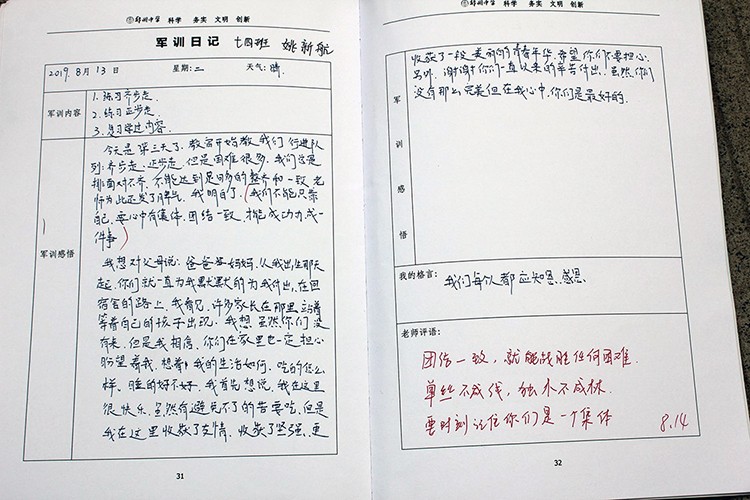 中学 科学 务实 文明 创新
军训日记 七四班 姚新航
2019 8月13日 星期:二 天气:晴
军训内容
1.练习齐步走.
2.练习正步走.
3.复习学过内容.
今天是第三天了.教官开始教我们行进队
列:齐步走、正步走.但是困难很多.我们总是
排面对不齐.不能达到是目的整齐和一致.老
师为此还发了脾气.我明白了.(我们不能只靠
自己.要心中有集体.团结一致.才能成功办成一
件事)
军训感悟
我想对父母说:爸爸妈妈.从我出生那天
起.你们就一直为我默默的为我付出.在回
宿舍的路上.我看见.许多家长在那里站着
等着自己的孩子出现.我想.虽然你们没
有来.但是我相信.你们在家里也一定担心
盼望着我.想着我的生活如何.吃的怎么
样、睡的好不好.我首先想说.我在这里
很快乐.虽然有避免不了的苦要吃.但是
我在这里收获了友情.收获了坚强.更
31
中学 科学 务实 文明 创新
收获了一段美丽的青春年华.希望你们不要担心.
另外.谢谢你们一直以来的辛苦付出.虽然你们
没有那么完美但在我心中.你们是最好的.
军训感悟
我的格言:
我们每个人都应知恩.感恩.
老师评语:
团结一致,就能战胜任何困难.
单丝不成线,独木不成林.
要时刻记住你们是一个集体
8.14
32